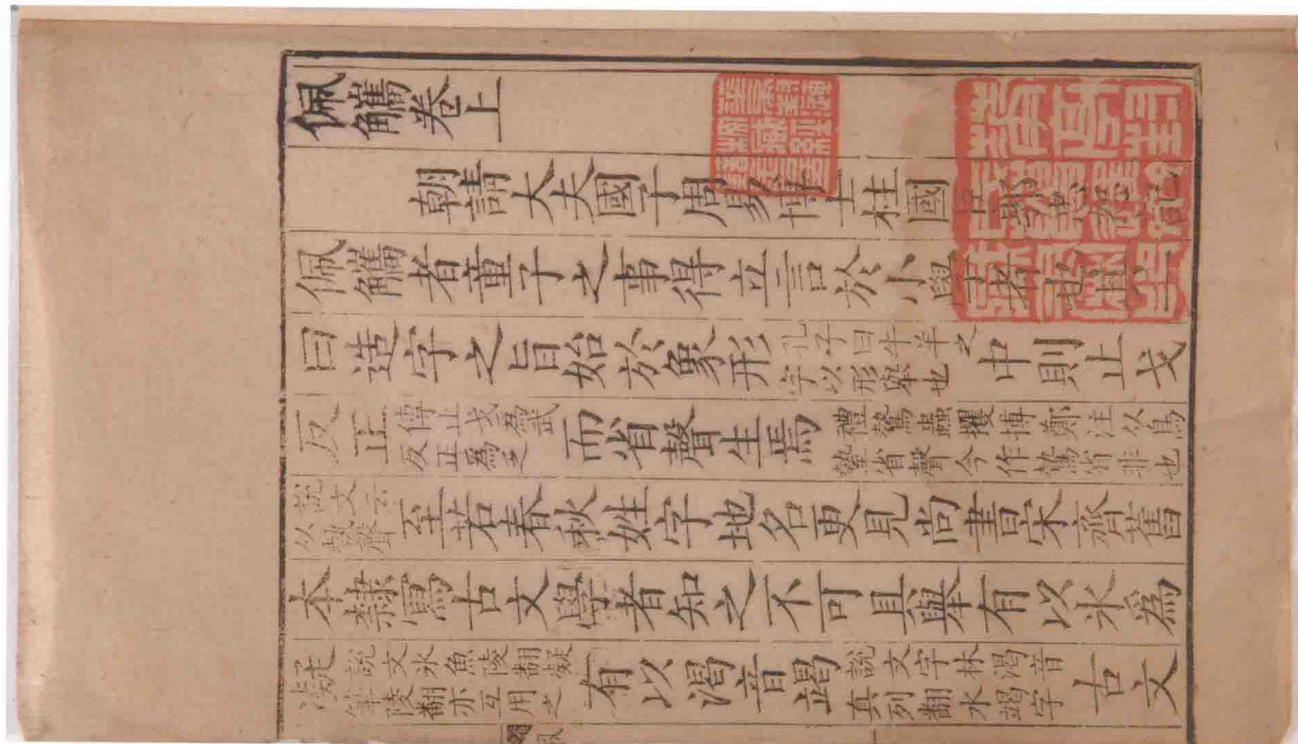 佩觿卷上
朝請大夫國子周易博士柱國臣郭忠恕記
佩觿者童子之事得立言於小學者也其一
曰造字之旨始於象形孔子曰牛羊之字以形舉也中則止戈
反正傳止戈爲武反正爲乏而省聲生焉禮鷙蟲攫搏鄭注从鳥摯省聲今作鷙省非也
說文云从執聲至若春秋姓字地名更見尚書宋齊舊
本隸寫古文學者知之不可具舉有以氷爲
凝說文氷魚陵翻凝筆陵翻亦互用之有以渴音竭說文字林渴音真列翻水竭字古文